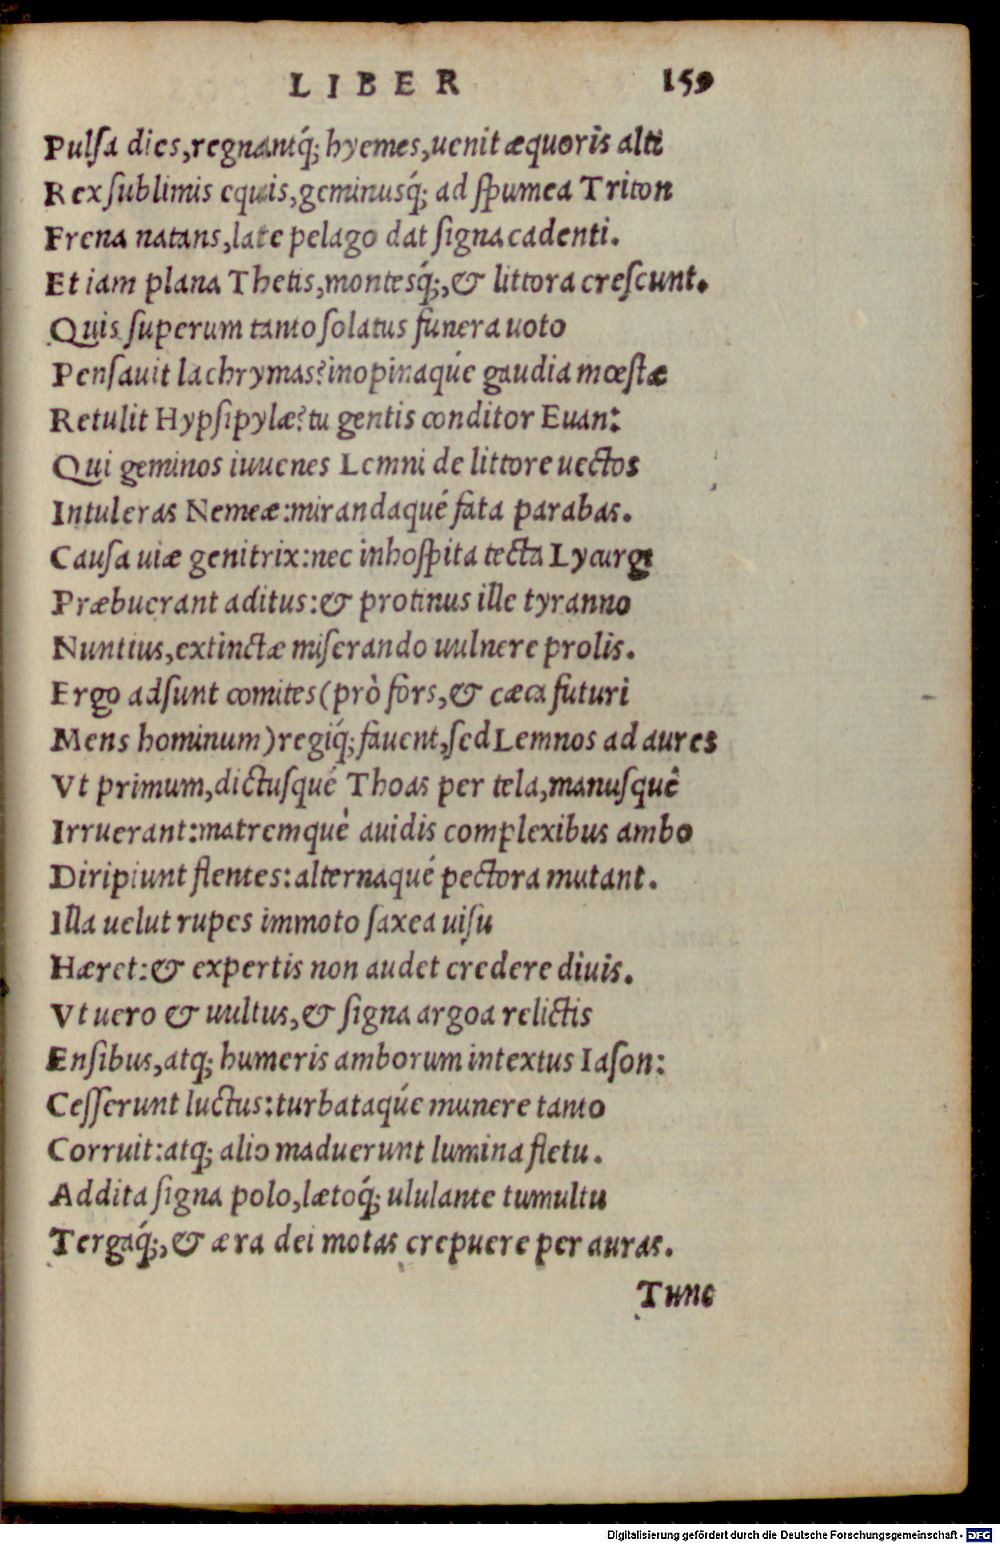 LIBER 159
Pulſa dies,regnantq́; hyemes,uenit æquoris alti
Rex ſublimis equis,geminusq́; ad ſpumea Triton
Frena natans,late pelago dat ſigna cadenti.
Et iam plana Thetis,montesq́;,& littora creſcunt.
Quis ſuperum tanto ſolatus funera uoto
Penſauit lachrymas?inopinaqúe gaudia mœſtæ
Retulit Hypſipylæ?tu gentis conditor Euan:
Qui geminos iuuenes Lemni de littore uectos
Intuleras Nemeæ:mirandaqué fata parabas.
Cauſa uiæ genitrix:nec inhoſpita tecta Lycurgi
Præbuerant aditus:& protinus ille tyranno
Nuntius,extinctæ miſerando uulnere prolis.
Ergo adſunt comites(prò fors,& cæca futuri
Mens hominum)regiq́;fauent,ſed Lemnos ad aures
Vt primum,dictuſqué Thoas per tela,manuſquê
Irruerant:matremquè auidis complexibus ambo
Diripiunt flentes:alternaqué pectora mutant.
Illa uelut rupes immoto ſaxea uiſu
Hæret:& expertis non audet credere diuis.
Vt uero & uultus,& ſigna argoa relictis
Enſibus,atq; humeris amborum intextus Iaſon:
Ceſſerunt luctus:turbataqúe munere tanto
Corruit:atq; alio maduerunt lumina fletu.
Addita ſigna polo,lætoq́; ululante tumultu
Tergaq́;,& æra dei motas crepuere per auras.
Tunc
Digitalisierung gefördert durch die Deutsche Forschungsgemeinschaft - DFG